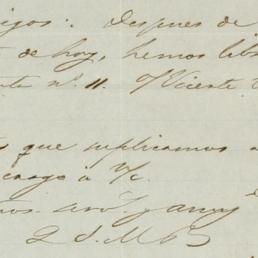 igos: Despues de
de hoy, hemos lib
nº 11. Vicente
que suplicamos
cargo á V/c.
y amy
Q S. M. B